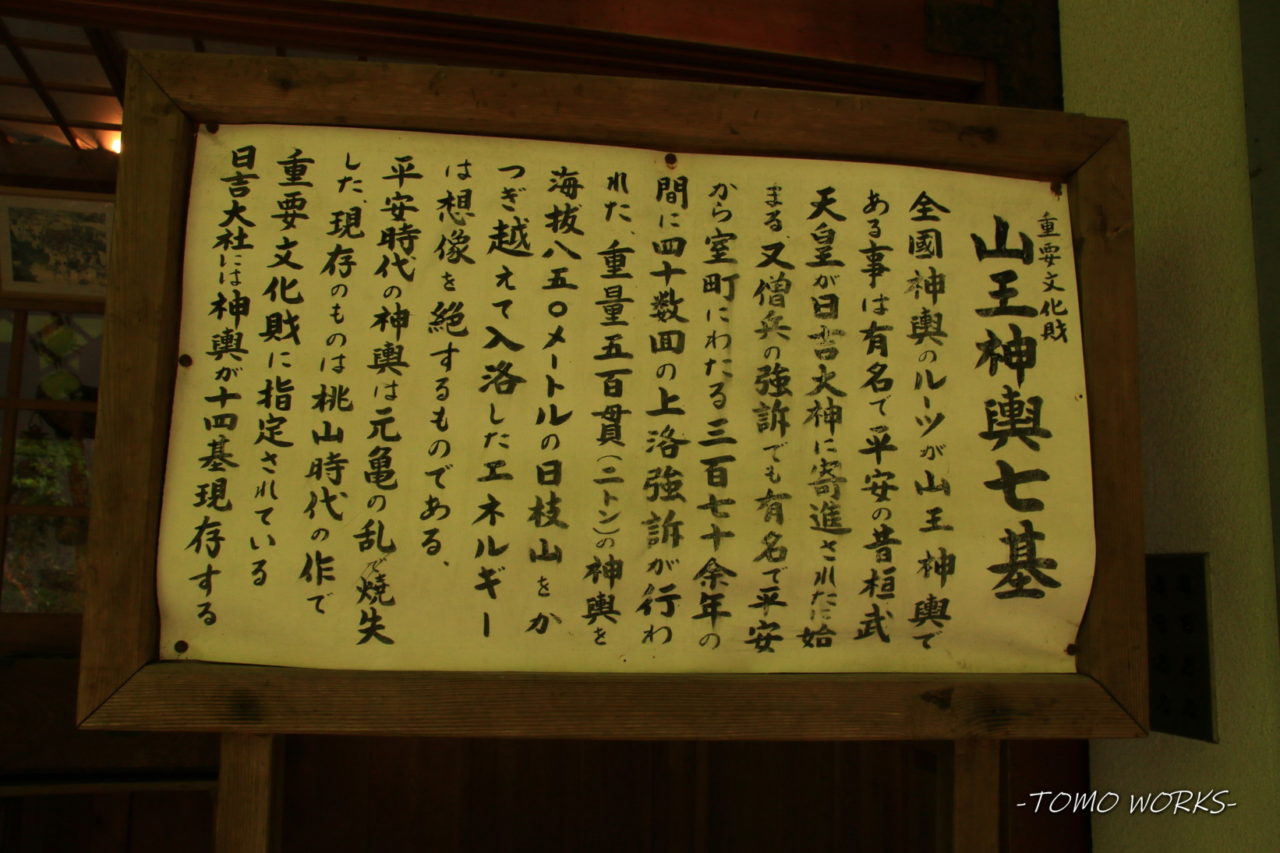 重要文化財
山王神輿七基
全國神輿のルーツが山王神輿で
ある事は有名で平安の昔桓武
天皇が日吉大神に寄進されたに始
まる、又僧兵の強訴でも有名で平安
から室町にわたる三百七十余年の
間に四十数回の上洛強訴が行わ
れた、重量五百貫（二トン）の神輿を
海抜八五〇メートルの日枝山をか
つぎ越えて入洛したエネルギー
は想像を絶するものである、
平安時代の神輿は元亀の乱で焼失
した、現存のものは桃山時代の作で
重要文化財に指定されている
日吉大社には神輿が十四基現存する
-TOMO WORKS-